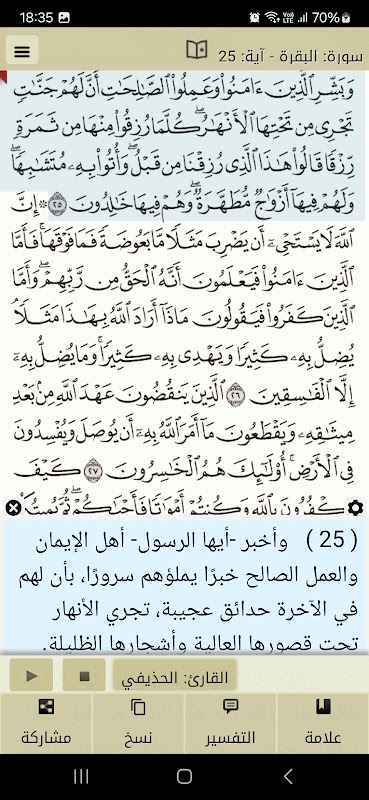 18:35
70%
سورة: البقرة - آية: 25
وَبَشِّرِ الَّذِينَ ءَامَنُوا وَعَمِلُوا الصَّالِحَاتِ أَنَّ لَهُمْ جَنَّاتٍ
تَجْرِي مِن تَحْتِهَا الْأَنْهَارُ كُلَّمَا رُزِقُوا مِنْهَا مِن ثَمَرَةٍ
رِّزْقًا قَالُوا هَٰذَا الَّذِي رُزِقْنَا مِن قَبْلُ وَأُتُوا بِهِ مُتَشَابِهًا
وَلَهُمْ فِيهَا أَزْوَاجٌ مُّطَهَّرَةٌ وَهُمْ فِيهَا خَالِدُونَ ٢٥ ۞ إِنَّ
اللَّهَ لَا يَسْتَحْيِۦ أَن يَضْرِبَ مَثَلًا مَّا بَعُوضَةً فَمَا فَوْقَهَا فَأَمَّا
الَّذِينَ ءَامَنُوا فَيَعْلَمُونَ أَنَّهُ الْحَقُّ مِن رَّبِّهِمْ وَأَمَّا
الَّذِينَ كَفَرُوا فَيَقُولُونَ مَاذَا أَرَادَ اللَّهُ بِهَٰذَا مَثَلًا
يُضِلُّ بِهِۦ كَثِيرًا وَيَهْدِي بِهِۦ كَثِيرًا وَمَا يُضِلُّ بِهِۦ
إِلَّا الْفَاسِقِينَ ٢٦ الَّذِينَ يَنقُضُونَ عَهْدَ اللَّهِ مِن بَعْدِ
مِيثَاقِهِۦ وَيَقْطَعُونَ مَا أَمَرَ اللَّهُ بِهِۦ أَن يُوصَلَ وَيُفْسِدُونَ
فِي الْأَرْضِ أُولَٰئِكَ هُمُ الْخَاسِرُونَ ٢٧ كَيْفَ
تَكْفُرُونَ بِاللَّهِ وَكُنتُمْ أَمْوَاتًا فَأَحْيَاكُمْ ثُمَّ يُمِيتُكُمْ
( 25 ) وأخبر -أيها الرسول- أهل الإيمان
والعمل الصالح خبرًا يملؤهم سرورًا، بأن لهم
في الآخرة حدائق عجيبة، تجري الأنهار
تحت قصورها العالية وأشجارها الظليلة.
القارئ: الحذيفي
علامة
التفسير
نسخ
مشاركة